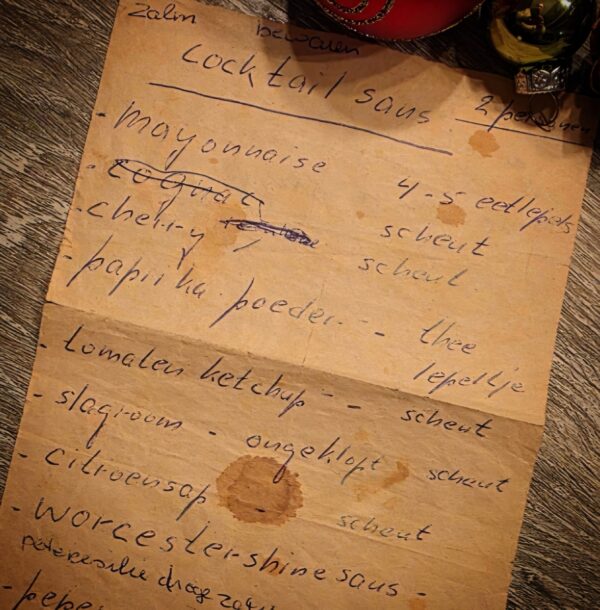 zalm bewaren
cocktail saus 2 personen
- mayonnaise 4-5 eetlepels
- cognac scheut
- cherry scheut
- paprika poeder - thee
lepeltje
- tomaten ketchup - scheut
- slagroom - ongeklopt scheut
- citroensap - scheut
- worcestershire saus -
peterselie droge
- pepe